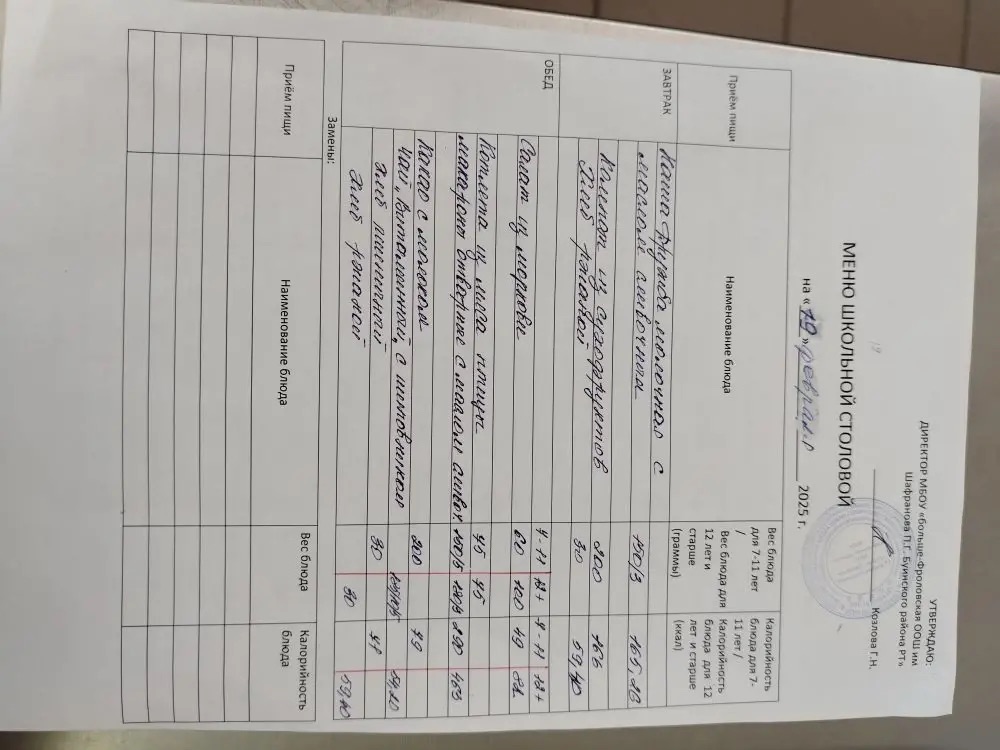 УТВЕРЖДАЮ:
ДИРЕКТОР МБОУ «больше-Фроловская ООШ им
Шафранова П.Г. Буинского района РТ»
Козлова Г.Н.
19
МЕНЮ ШКОЛЬНОЙ СТОЛОВОЙ
на «19» февраля 2025 г.
Приём пищи Наименование блюда Вес блюда для 7-11 лет / Вес блюда для 12 лет и старше (граммы) Калорийность блюда для 7-11 лет / Калорийность блюда для 12 лет и старше (ккал)
ЗАВТРАК Каша Дружба молочная с
маслом сливочным 150/3 165,26
Компот из сухофруктов 200 166
Хлеб ржаной 30 59,40
ОБЕД 7-11 12+ 7-11 12+
Салат из моркови 60 100 49 82
Котлета из мяса птицы 75 75
макароны отварные с маслом сливоч. 150/5 180/3 290 403
Какао с молоком 200 79
чай „Витаминный" с шиповником 59,20
хлеб пшеничный 30
Хлеб ржаной 30 59,40
Замены:
Приём пищи Наименование блюда Вес блюда Калорийность блюда